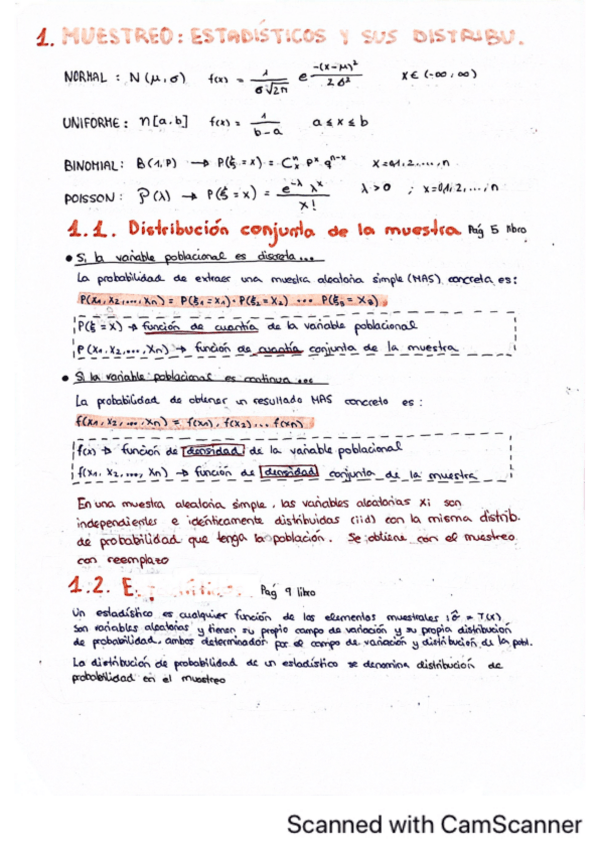 1. MUESTREO: ESTADÍSTICOS Y SUS DISTRIBU.
NORMAL: N(μ,σ) f(x) = 1/σ√2π e^(-(x-μ)²/2σ²) x∈(-∞,∞)
UNIFORME: n[a,b] f(x) = 1/b-a a≤x≤b
BINOMIAL: B(1,P) → P(ξ=x) = C_x^n P^x q^(n-x) x=0,1,2,...,n
POISSON: P(λ) → P(ξ=x) = e^(-λ) λ^x / x! λ>0 ; x=0,1,2,...,n
1.1. Distribución conjunta de la muestra Pág 5 libro
• Si la variable poblacional es discreta...
La probabilidad de extraer una muestra aleatoria simple (MAS) concreta es:
P(x₁,x₂,...,xn) = P(ξ₁=x₁)·P(ξ₂=x₂) ... P(ξ₃=x₃)
P(ξ=x) → función de cuantía de la variable poblacional
P(x₁,x₂,...,xn) → función de cuantía conjunta de la muestra
• Si la variable poblacional es continua...
La probabilidad de obtener un resultado MAS concreto es:
f(x₁,x₂,...,xn) = f(x₁).f(x₂)...f(xn)
f(x) → función de densidad de la variable poblacional
f(x₁,x₂,...,xn) → función de densidad conjunta de la muestra
En una muestra aleatoria simple, las variables aleatorias Xi son
independientes e idénticamente distribuidas (iid) con la misma distrib.
de probabilidad que tenga la población. Se obtiene con el muestreo
con reemplazo
1.2. E. Pág 9 libro
Un estadístico es cualquier función de los elementos muestrales = T(X)
Son variables aleatorias y tienen su propio campo de variación y su propia distribución
de probabilidad, ambos determinador por el campo de variación y distribución de la pobl.
La distribución de probabilidad de un estadístico se denomina distribución de
probabilidad en el muestreo
Scanned with CamScanner